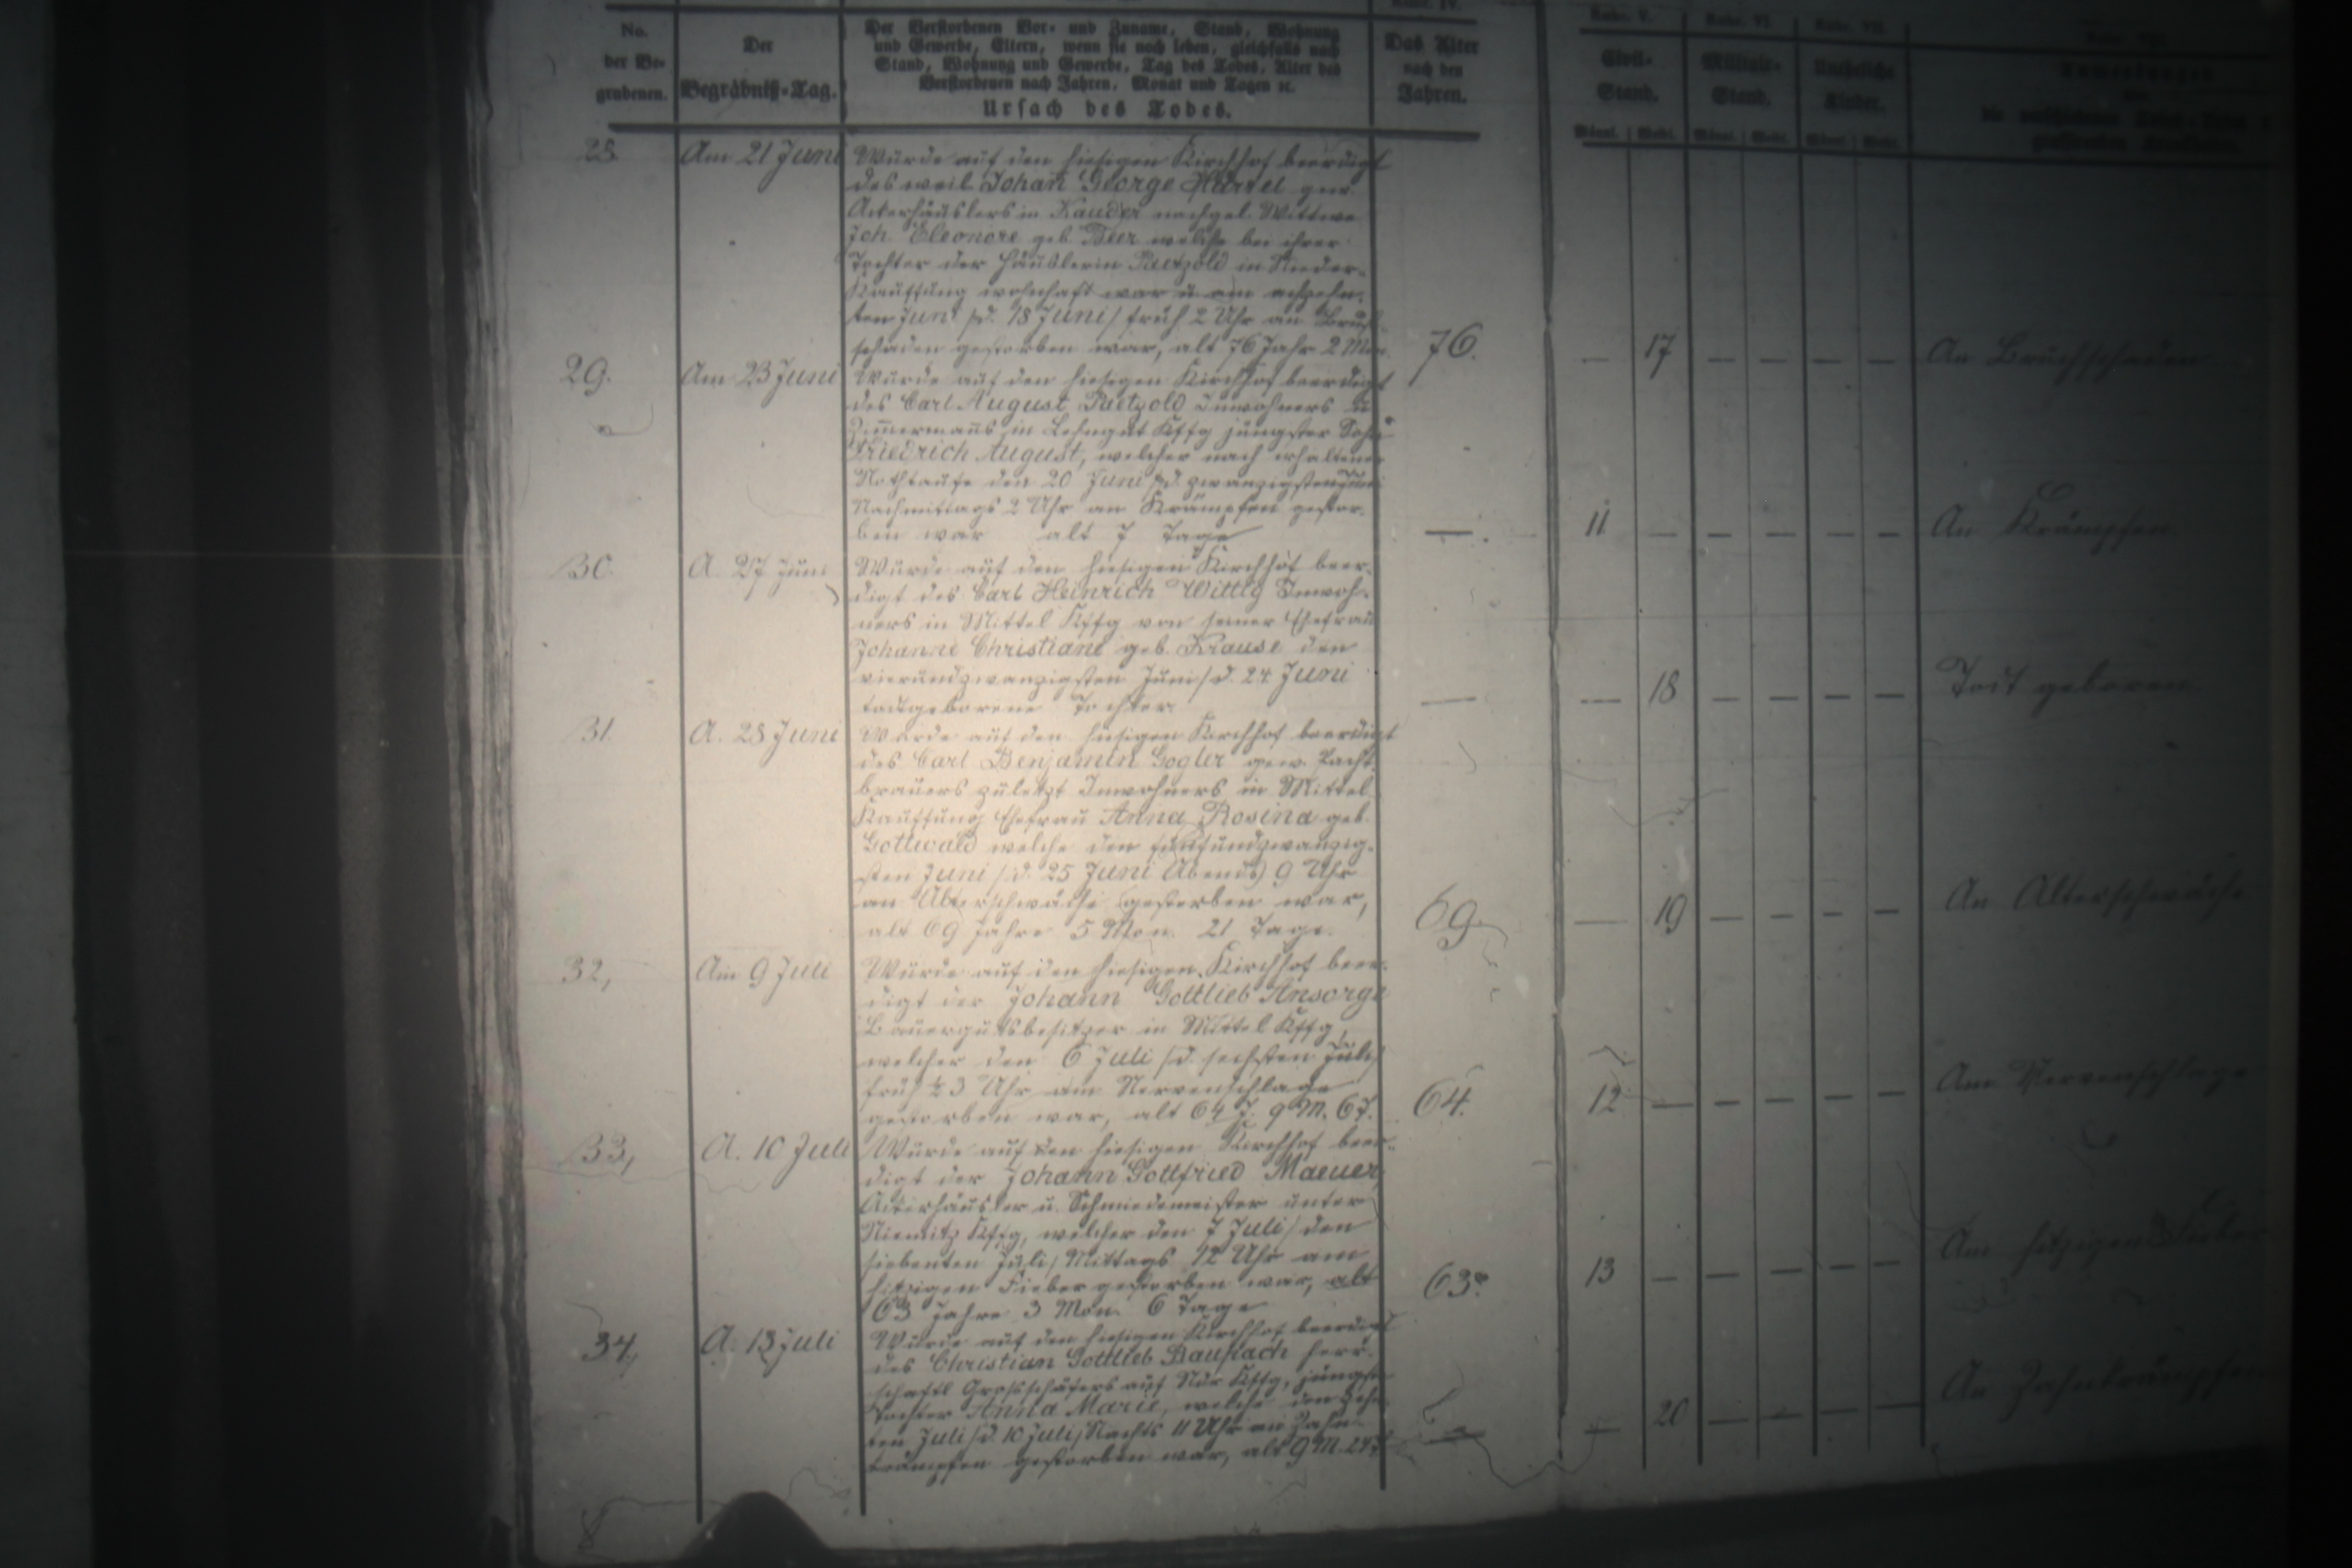 No.
der Be-
grabenen.
Der
Begräbniß-Tag.
Der Verstorbenen Vor- und Zuname, Stand, Wohnung
und Gewerbe, Eltern, wenn sie noch leben, gleichfalls nach
Stand, Wohnung und Gewerbe, Tag des Todes, Alter des
Verstorbenen nach Jahren, Monat und Tagen ꝛc.
Ursach des Todes.
Rubr. IV.
Das Alter
nach den
Jahren.
Rubr. V.
Civil-
Stand.
Männl. Weibl.
Rubr. VI.
Militair-
Stand.
Männl. Weibl.
Rubr. VII.
Uneheliche
Kinder.
Männl. Weibl.
28.
Am 21 Juni
Wurde auf den hiesigen Kirchhof beerdigt
des weil. Johan George gew.
Ackerhäuslers in Kauder nachgel. Wittwe
Joh. Eleonore geb. Beer welche bei ihrer
Tochter der Häuslerin Paetzold in Nieder-
Kauffung wohnhaft war u. am achzehn-
ten Juni /d. 18 Juni/ früh 2 Uhr an Bruch-
schaden gestorben war, alt 76 Jahr 2 Mon.
76.
— 17 — — — —
An Bruchschaden
29.
Am 23 Juni
Wurde auf den hiesigen Kirchhof beerdigt
des Carl August Paetzold Inwohners u.
Zimermans in Lehngut Kffg jüngster Sohn
Friedrich August, welcher nach erhaltener
Nothtaufe den 20 Juni /d. zwanzigsten Juni
Nachmittags 2 Uhr an Krämpfen gestor-
ben war alt 7 Tage
—
11 — — — — —
An Krämpfen
30.
A. 27 Juni
Wurde auf den hiesigen Kirchhof beer-
digt des Carl Heinrich Wittig Inwoh-
ners in Mittel Kffg von seiner Ehefrau
Johanne Christiane geb. Krause den
vierundzwanzigsten Juni /d. 24 Juni
todtgeborene Tochter.
—
— 18 — — — —
Todt geboren
31.
A. 28 Juni
Wurde auf den hiesigen Kirchhof beerdigt
des Carl Benjamin Gogler gew. Pacht-
brauers zuletzt Inwohners in Mittel
Kauffung Ehefrau Anna Rosina geb.
Gottwald welche den fünfundzwanzig-
sten Juni /d. 25 Juni Abends 9 Uhr
an Alterschwäche gestorben war,
alt 69 Jahre 5 Mon. 21 Tage.
69.
— 19 — — — —
An Alterschwäche
32,
Am 9 Juli
Wurde auf den hiesigen Kirchhof beer-
digt der Johann Gottlieb Ansorge
Bauergutsbesitzer in Mittel Kffg,
welcher den 6 Juli /d. sechsten Juli/
früh ½ 3 Uhr am Nervenschlage
gestorben war, alt 64 J. 9 M. 6 T.
64.
12 — — — — —
Am Nervenschlage
33,
A. 10 Juli
Wurde auf den hiesigen Kirchhof beer-
digt der Johann Gottfried Maeuer,
Ackerhäusler u. Schmiedemeister unter
Niemitz Kffg, welcher den 7 Juli / den
siebenten Juli / Mittags 12 Uhr am
hitzigen Fieber gestorben war, alt
63 Jahre 3 Mon. 6 Tage
63.
13 — — — — —
Am hitzigen Fieber
34,
A. 13 Juli
Wurde auf den hiesigen Kirchhof beerdigt
des Christian Gottlieb herr-
schaftl Grosschäfers auf Ndr Kffg, jüngste
Tochter Anna Marie, welche den zehn-
ten Juli /d. 10 Juli/ Nachts 11 Uhr an Zahn-
krämpfen gestorben war, alt 9 M.
—
— 20 — — — —
An Zahnkrämpfen